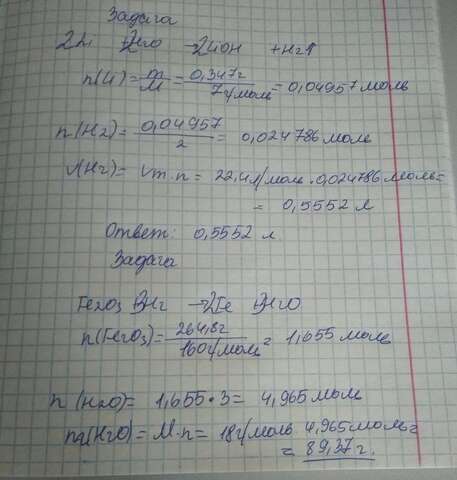 Задача
2Li + 2H2O → 2LiOH + H2↑
n(Li) = m/M = 0,347г/7г/моль = 0,04957 моль
n(H2) = 0,04957/2 = 0,024786 моль
V(H2) = Vm·n = 22,4л/моль · 0,024786 моль =
= 0,5552 л
Ответ: 0,5552 л
Задача
Fe2O3 + 3H2 → 2Fe + 3H2O
n(Fe2O3) = 264,8г/160г/моль = 1,655 моль
n(H2O) = 1,655·3 = 4,965 моль
m(H2O) = M·n = 18г/моль 4,965 моль =
= 89,37 г.